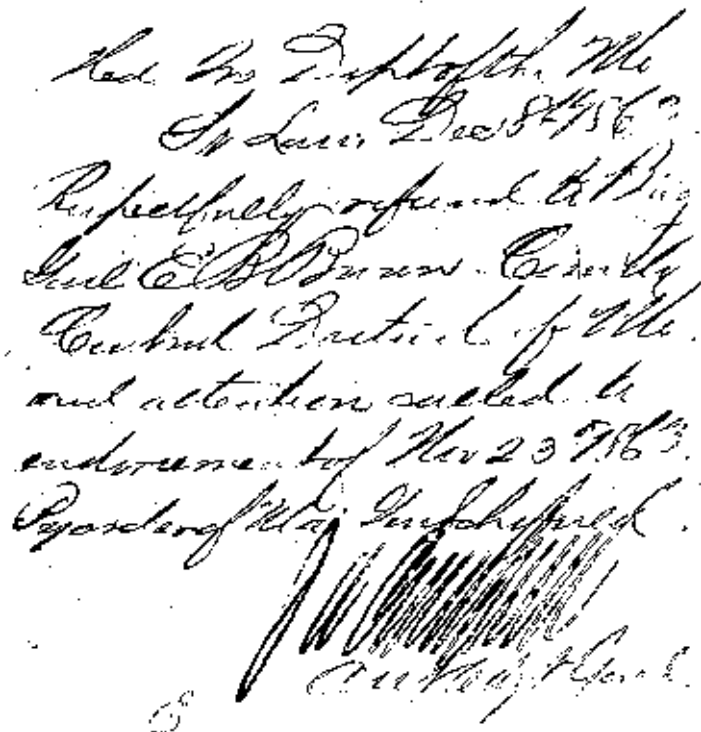 Hed. Qrs Dept of the Mo
St Louis Dec 8th 1863
Respectfully referred to Brig
Genl E B Brown Com'dg
Central District of Mo.
and attention called to
endorsement of Nov 23 1863.
By order of Maj Gen Schofield.
Asst Adjt Genl.